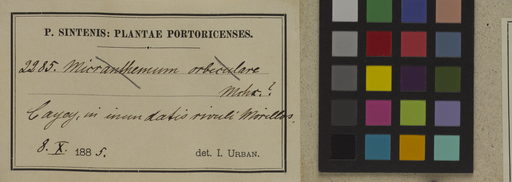 P. SINTENIS: PLANTAE PORTORICENSES.
2285. Micranthemum orbiculare
Mchx.?
Cayey, in inundatis rivuli Morillos.
8. X. 1885. det. I. URBAN.